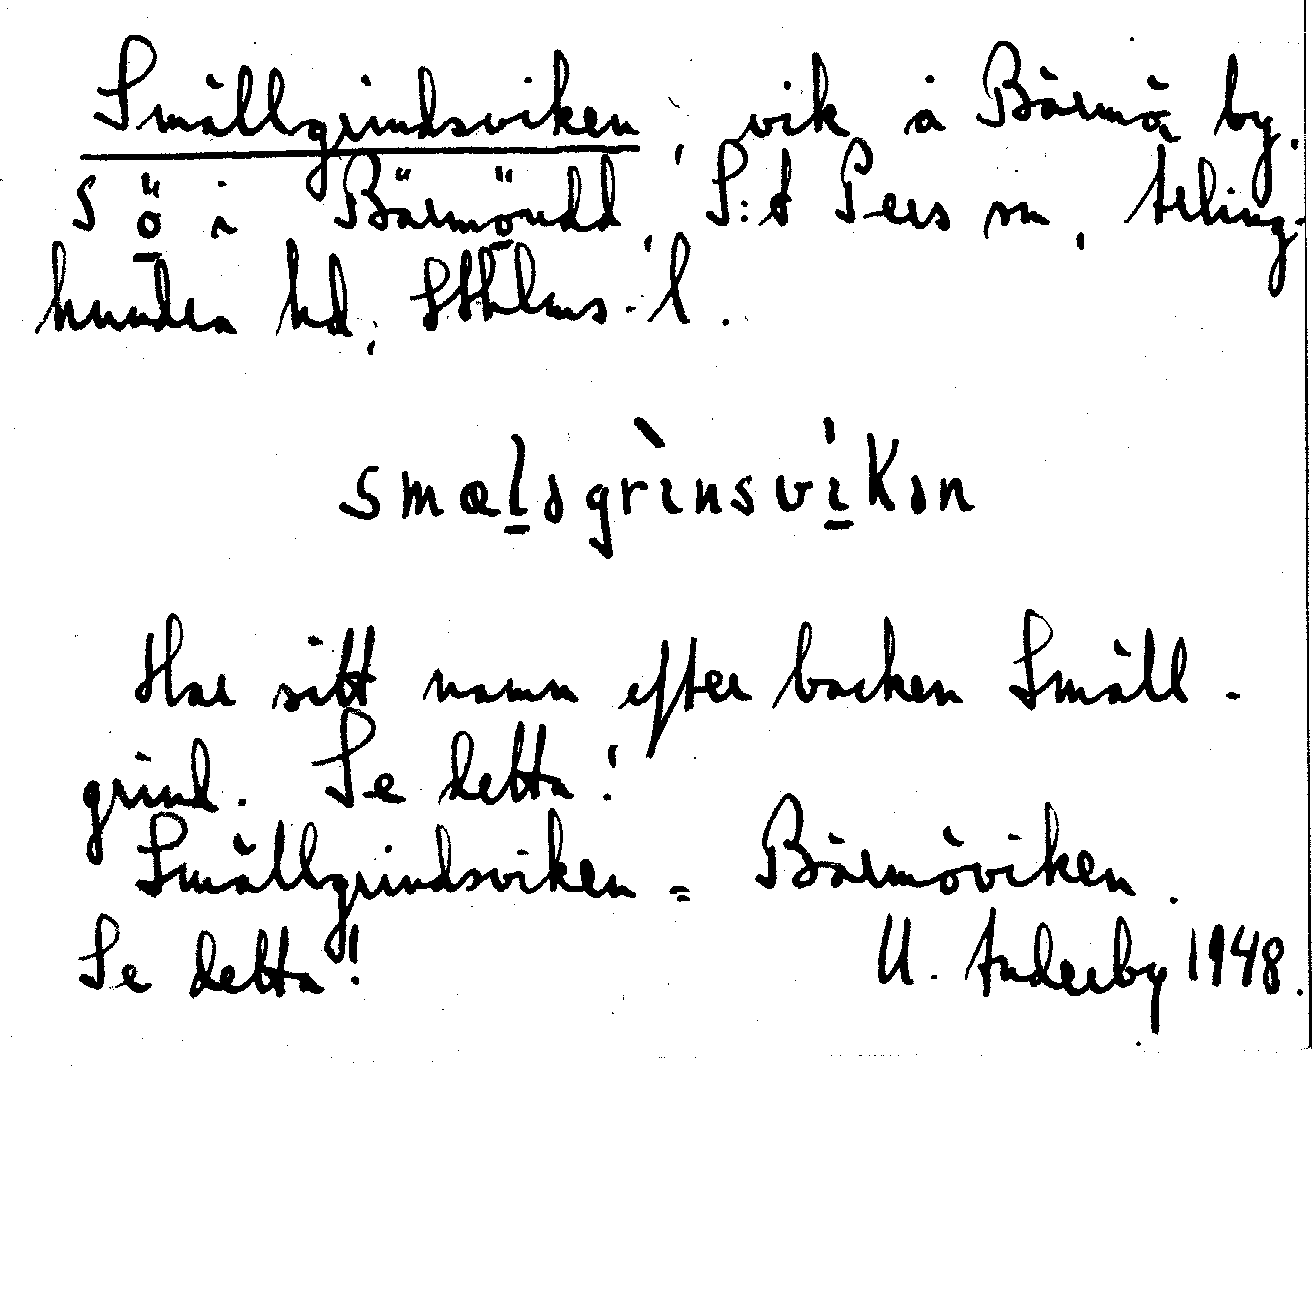 Smällgrindsviken, vik å Bärmö by,
S Ö i Bärmöudd, S:t Pers sn, Ärling-
hundra hd, Sthlms. l.
smælsgrìnsvikən
Har sitt namn efter backen Smäll-
grind. Se detta!
Smällgrindsviken = Bärmöviken.
Se detta! U. Anderby 1948.